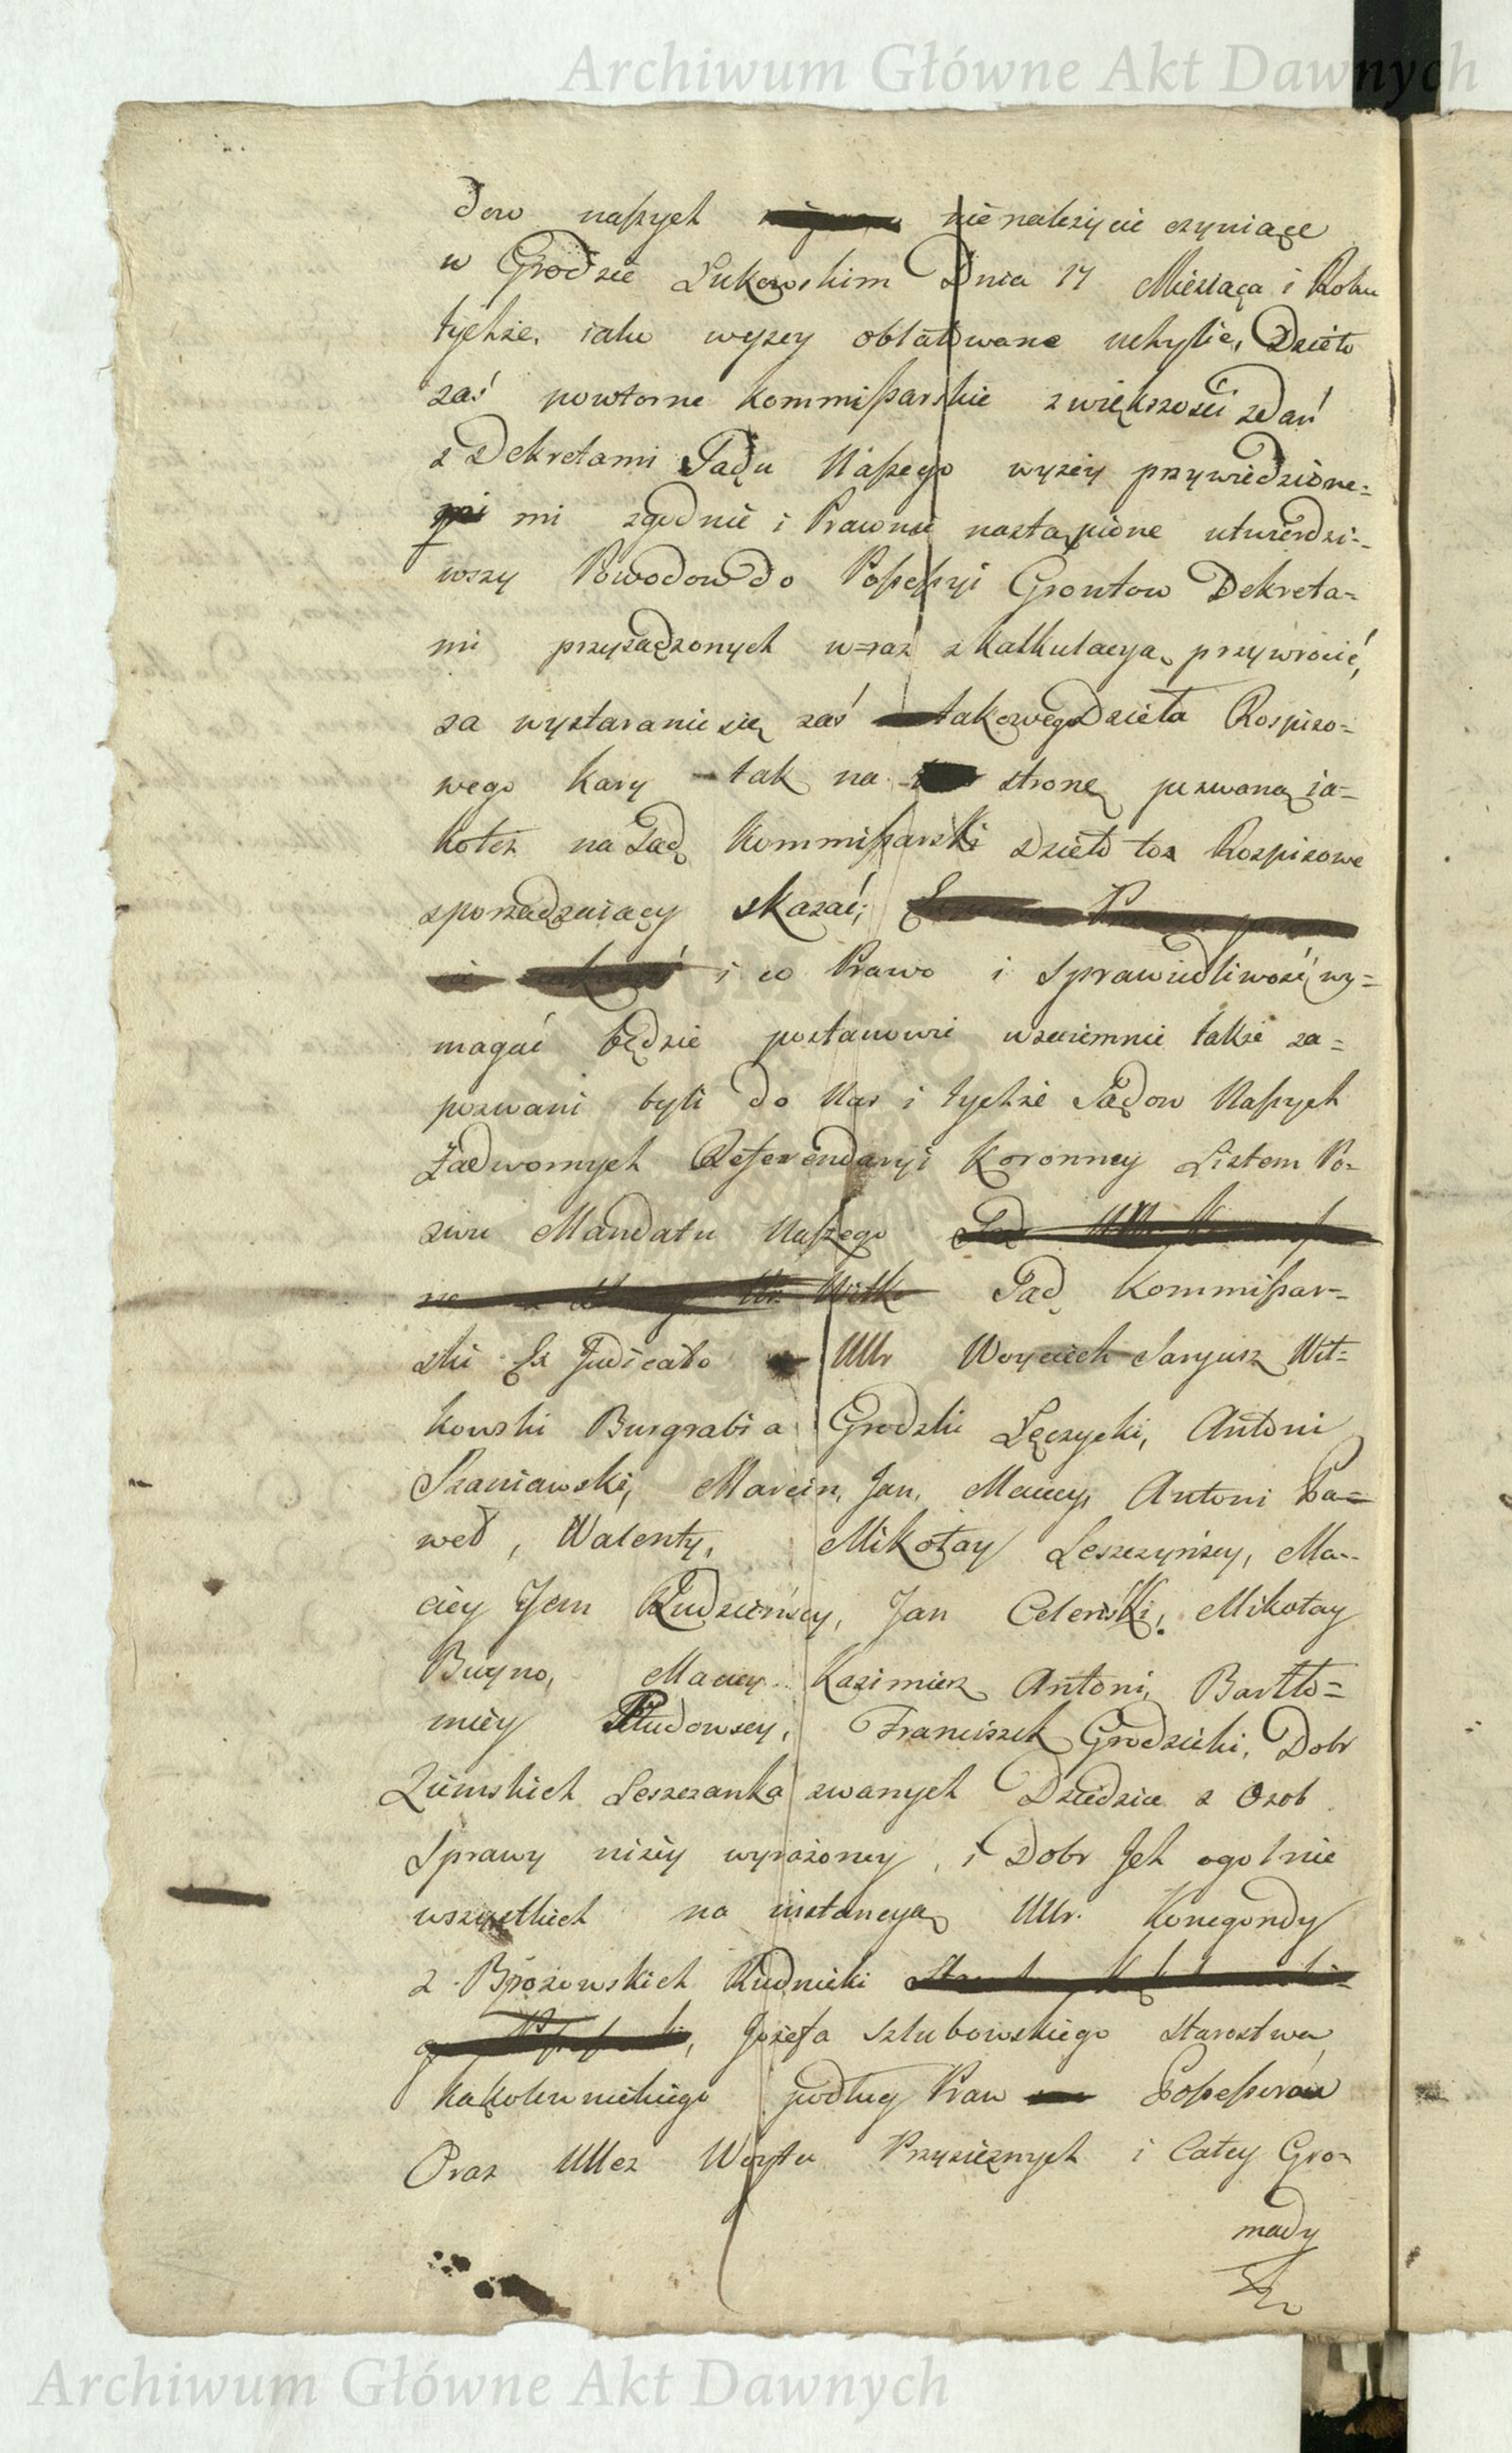 Archiwum Główne Akt Dawnych
dow naszych nienależycie czyniące
w Grodzie Łukowskim Dnia 17 Miesiąca i Roku
tychże, iako wyżey oblatowane uchylić, Dzieło
zaś powtorne Kommissarskie z większości zdań
z Dekretami Sądu Naszego wyżey przywiedzione=
mi zgodnie i Prawnie nastąpione utwierdzi=
wszy Powodow do Possessyi Grontow Dekreta=
mi przysądzonych wraz z kalkulacyą przywrocić,
za wystaranie się zaś takowego Dzieła Rospiso=
wego kary tak na stronę pozwaną ia=
koteż na Sąd Kommissarski Dzieło toż Rozpisowe
sporządzaiący skazać;
i co Prawo i Sprawiedliwość wy=
magać będzie postanowić wzaiemnie także za=
pozwani byli do Nas i tychże Sądow Naszych
Zadwornych Referendaryi Koronney Listem Po=
zwu Mandatu Naszego
Sąd Kommissar=
ski Ex Judicato UUr Woyciech Saryusz Wit=
kowski Burgrabia Grodzki Łęczycki, Antoni
Szaniawski, Marcin, Jan, Maciey, Antoni Pa=
weł, Walenty, Mikołay Leszczyńscy, Ma=
ciey Jan Rudzieńscy, Jan Celeński, Mikołay
Buyno, Maciey Kazimierz Antoni, Bartło=
miey Płudowscy, Franciszek Grodzicki, Dobr
Ziemskich Leszczanka zwanych Dziedzice z Osob
Sprawy niżey wyrażoney, i Dobr Ich ogolnie
wszystkich na instancyą UUr. Konegondy
z Brzozowskich Rudnicki
Jozefa Szlubowskiego Starostwa
Kąkolewnickiego podług Praw Possessorow
Oraz UUcz Woyta Przysiężnych i Całey Gro=
mady
Archiwum Główne Akt Dawnych